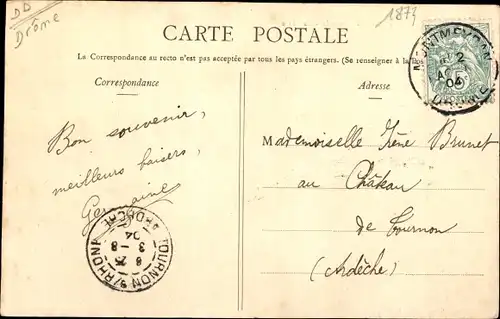 DD
Drôme
1873
CARTE POSTALE
La Correspondance au recto n'est pas acceptée par tous les pays étrangers. (Se renseigner à la
Correspondance
Adresse
MONTMEYRAN
2
AOUT
04
DROME
Bon souvenir,
meilleurs baisers,
Germaine
Mademoiselle Irène Brunet
au Château
de Tournon
(Ardèche)
TOURNON S/RHONE
6 25
3 - 8
04
ARDECHE